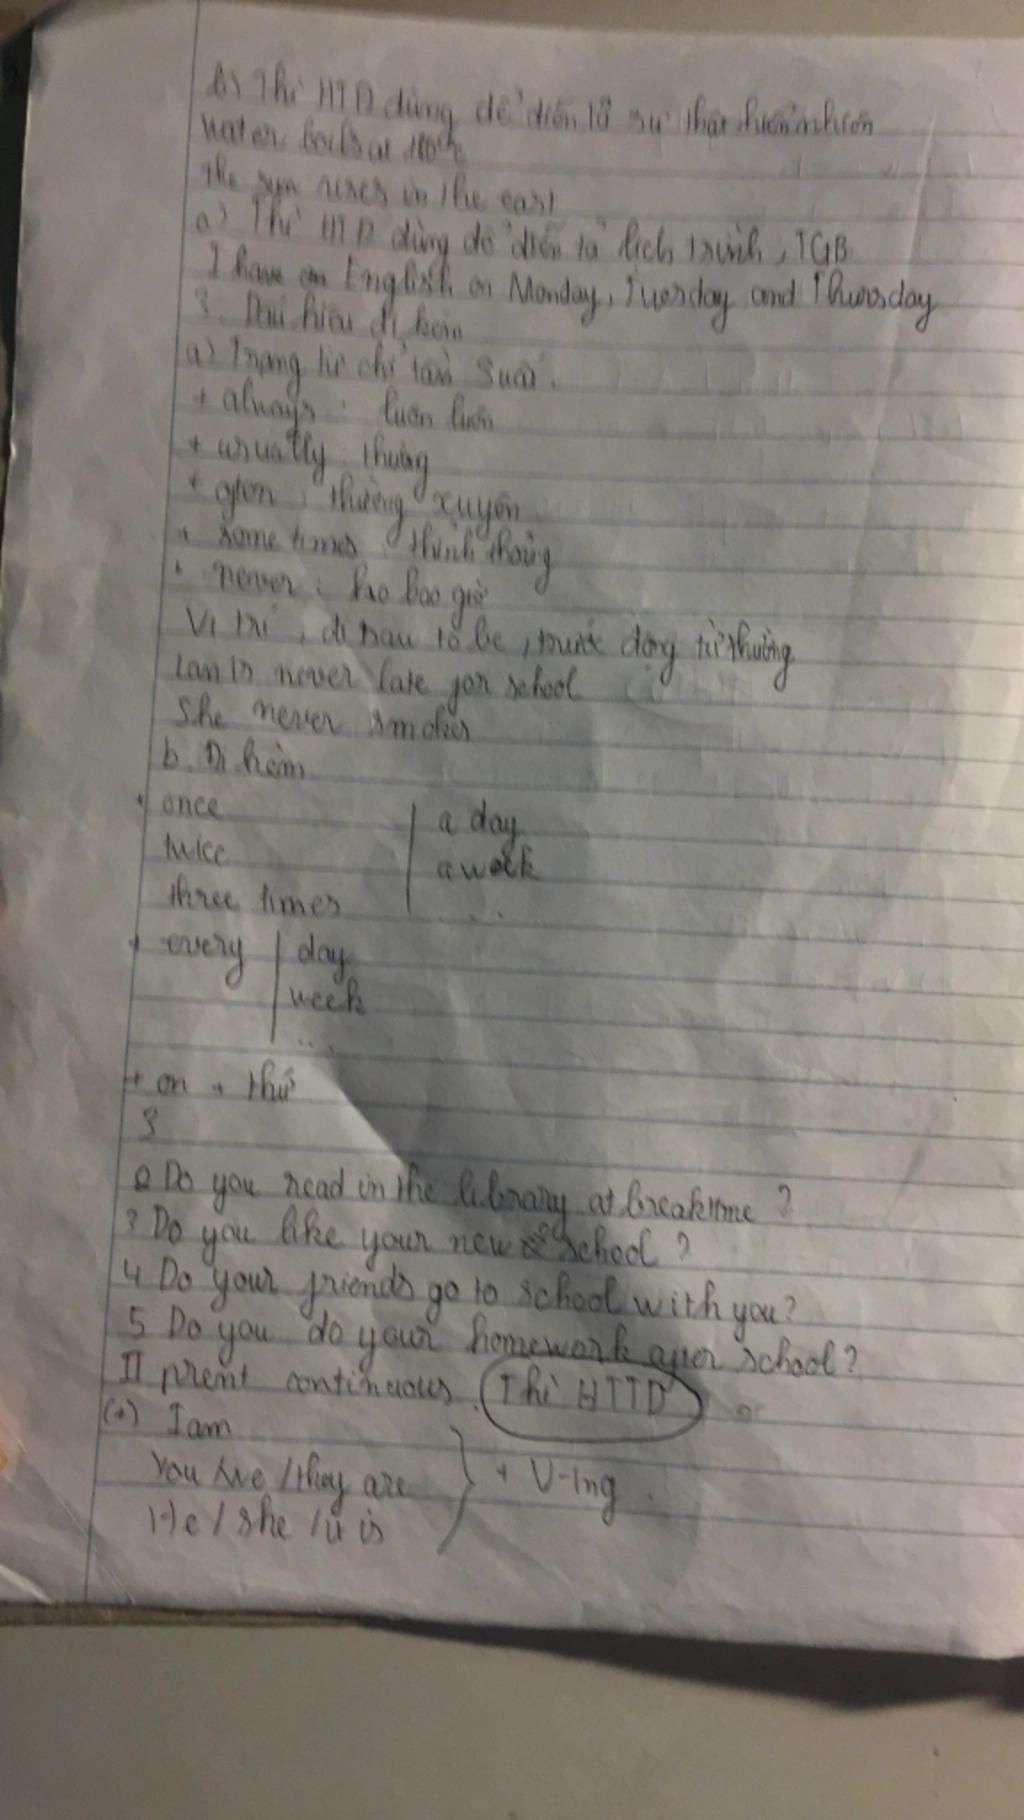 b) Thì HTD dùng để diễn tả sự thật hiển nhiên
Water boils at 100°C
The sun rises in the east
a) Thì HTD dùng để diễn tả lịch trình, TGB
I have an English on Monday, Tuesday and Thursday
3. Dấu hiệu đi kèm
a) Trạng từ chỉ tần suất.
+ always : luôn luôn
+ usually : thường
+ often : thường xuyên
+ some times : thỉnh thoảng
+ never : ko bao giờ
Vị trí : đi sau to be, trước động từ thường
Lan is never late for school
She never smokes
b. Đi kèm
+ once | a day
twice | a week
three times | ...
+ every | day
week
...
+ on + thứ
3
2 Do you read in the library at breaktime ?
3 Do you like your new school ?
4 Do your friends go to school with you?
5 Do you do your homework after school?
II prent continuous. (Thì HTTD)
(+) I am
You /we / they are } + V-ing.
He / she / it is